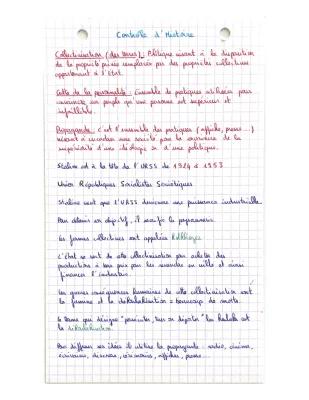 Contrôle d'Histoire
Collectivisation (des terres) : Politique visant à la disparition
de la propriété privée remplacée par des propriétés collectives
appartenant à l'état.
Culte de la personnalité : Ensemble de pratiques utilisées pour
convaincre un peuple qu'une personne est supérieur et
infaillible.
Propagande : c'est l'ensemble des pratiques (affiche, presse...)
visant à convaincre une société pour la
supériorité d'une idéologie ou d'une politique.
Staline est à la tête de l'URSS de 1924 à 1953
Union Républiques Socialistes Soviétiques
Staline veut que l'URSS devienne une puissance industrielle.
Pour obtenir ses objectifs, il sacrifie la paysannerie.
Les fermes collectives sont appelées Kolkhozes
L'état se sert de cette collectivisation pour acheter des
productions à bas prix pour les revendre en ville et ainsi
financer l'industrie.
Les graves conséquences humaines de cette collectivisation sont
la famine et la dékoulakisation = beaucoup de morts.
le terme qui désigne "persécuter, tuer ou déporter" les koulaks est
la dékoulakisation
Pour diffuser ses idées il utilise la propagande : radio, cinéma,
écrivains, discours, cérémonies, affiches, presse...